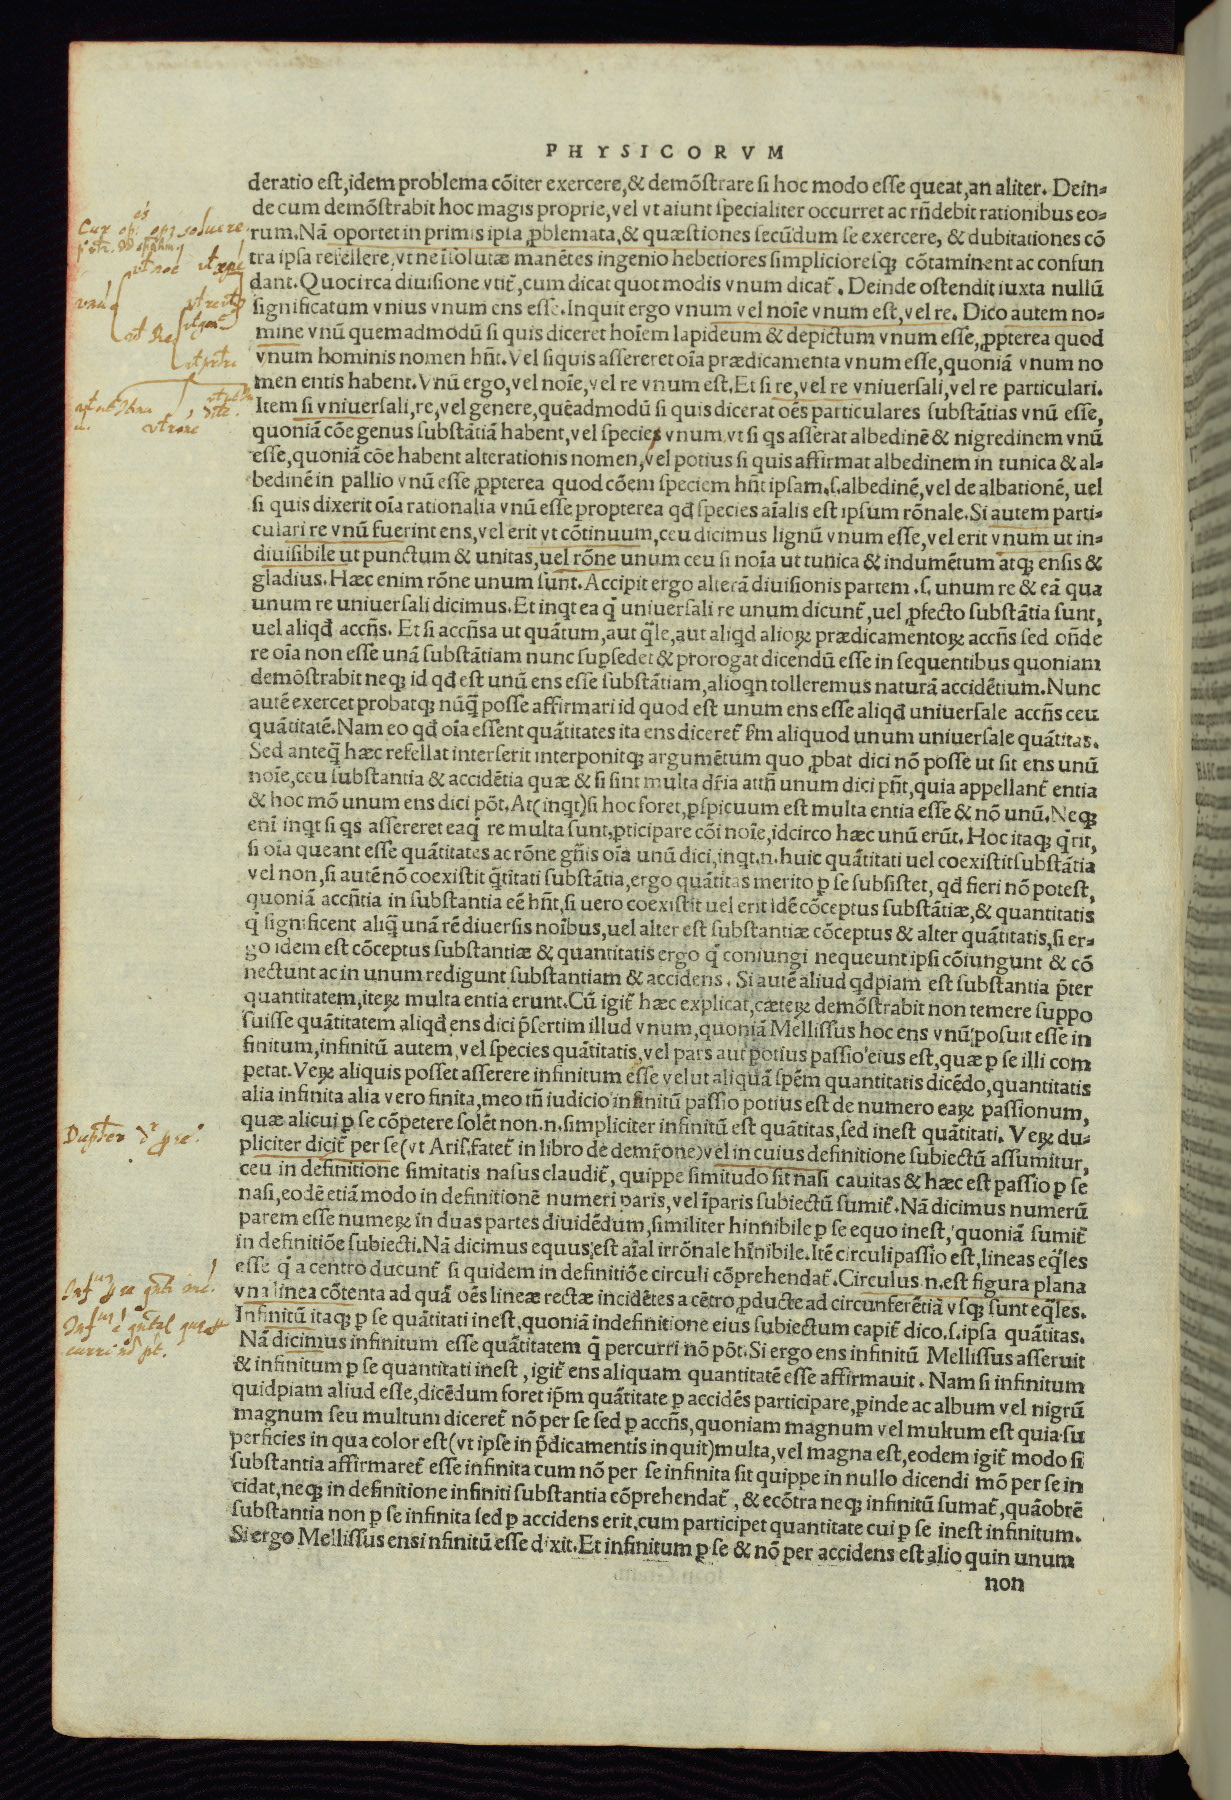 PHYSICORVM
deratio est, idem problema cõiter exercere, & demõstrare si hoc modo esse queat, an aliter. Dein-
de cum demõstrabit hoc magis proprie, vel vt aiunt specialiter occurret ac rñdebit rationibus eo-
rum. Nã oportet in primis ipsa ꝓblemata, & quæstiones secũdum se exercere, & dubitationes cõ
tra ipsa refellere, vt ne ĩsolutæ manẽtes ingenio hebetiores simplicioresq; cõtaminent ac confun
dant. Quocirca diuisione vtit̃, cum dicat quot modis vnum dicat̃. Deinde ostendit iuxta nullũ
significatum vnius vnum ens esse. Inquit ergo vnum vel noĩe vnum est, vel re. Dico autem no-
mine vnũ quemadmodũ si quis diceret hoĩem lapideum & depictum vnum esse, ꝓpterea quod
vnum hominis nomen hñt. Vel si quis assereret oĩa prædicamenta vnum esse, quoniã vnum no
men entis habent. Vnũ ergo, vel noĩe, vel re vnum est. Et si re, vel re vniuersali, vel re particulari.
Item si vniuersali, re, vel genere, quẽadmodũ si quis dicerat oẽs particulares substãtias vnũ esse,
quoniã cõe genus substãtiã habent, vel specie, vnum, vt si qs asserat albedinẽ & nigredinem vnũ
esse, quoniã cõe habent alterationis nomen, vel potius si quis affirmat albedinem in tunica & al-
bedinẽ in pallio vnũ esse ꝓpterea quod cõem speciem hñt ipsam .s. albedinẽ, vel de albationẽ, uel
si quis dixerit oĩa rationalia vnũ esse propterea qđ species aĩalis est ipsum rõnale. Si autem parti-
culari re vnũ fuerint ens, vel erit vt cõtinuum, ceu dicimus lignũ vnum esse, vel erit vnum ut in-
diuisibile ut punctum & unitas, uel rõne unum ceu si noĩa ut tunica & indumẽtum atq; ensis &
gladius. Hæc enim rõne unum sunt. Accipit ergo alterã diuisionis partem .s. unum re & eã qua
unum re uniuersali dicimus. Et inqt ea q̃ uniuersali re unum dicunt̃, uel ꝓfecto substãtia sunt,
uel aliqđ accñs. Et si accñsa ut quãtum, aut q̃le, aut aliqd alioꝝ prædicamentoꝝ accñs sed oñde
re oĩa non esse unã substãtiam nunc suꝑsedet & prorogat dicendũ esse in sequentibus quoniam
demõstrabit neq; id qđ est unũ ens esse substãtiam, alioqn tolleremus naturã accidẽtium. Nunc
autẽ exercet probatq; nũq̃ posse affirmari id quod est unum ens esse aliqđ uniuersale accñs ceu
quãtitatẽ. Nam eo qđ oĩa essent quãtitates ita ens diceret̃ ẜm aliquod unum uniuersale quãtitas.
Sed anteq̃ hæc refellat interserit interponitq; argumẽtum quo ꝓbat dici nõ posse ut sit ens unũ
noĩe, ceu substantia & accidẽtia quæ & si sint multa dr̃ia attñ unum dici pñt, quia appellant̃ entia
& hoc mõ unum ens dici põt. At (inqt) si hoc foret, ꝑspicuum est multa entia esse & nõ unũ. Neq;
enĩ inqt si qs assereret eaq̃ re multa sunt, ꝑticipare cõi noĩe, idcirco hæc unũ erũt. Hoc itaq; q̃rit,
si oĩa queant esse quãtitates ac rõne gñis oĩa unũ dici, inqt .n. huic quãtitati uel coexistit substãtia
vel non, si autẽ nõ coexistit q̃titati substãtia, ergo quãtitas merito ꝑ se subsistet, qđ fieri nõ potest,
quoniã accñtia in substantia eẽ hñt, si uero coexistit uel erit idẽ cõceptus substãtiæ, & quantitatis
q̃ significent aliq̃ unã rẽ diuersis noĩbus, uel alter est substantiæ cõceptus & alter quãtitatis, si er-
go idem est cõceptus substantiæ & quantitatis ergo q̃ coniungi nequeunt ipsi cõiungunt & cõ
nectunt ac in unum redigunt substantiam & accidens. Si autẽ aliud qdpiam est substantia p̃ter
quantitatem, iteꝝ multa entia erunt. Cũ igit̃ hæc explicat, cæteꝝ demõstrabit non temere suppo
suisse quãtitatem aliqđ ens dici p̃sertim illud vnum, quoniã Mellissus hoc ens vnũ posuit esse in
finitum, infinitũ autem, vel species quãtitatis, vel pars aut potius passio eius est, quæ ꝑ se illi com
petat. Veꝝ aliquis posset asserere infinitum esse velut aliquã spẽm quantitatis dicẽdo, quantitatis
alia infinita alia vero finita, meo tñ iudicio infinitũ passio potius est de numero eaꝝ passionum,
quæ alicui ꝑ se cõpetere solẽt non .n. simpliciter infinitũ est quãtitas, sed inest quãtitati. Veꝝ du-
pliciter dicit̃ per se (vt Aris. fatet̃ in libro de demr̃one) vel in cuius definitione subiectũ assumitur,
ceu in definitione simitatis nasus claudit̃, quippe simitudo sit nasi cauitas & hæc est passio ꝑ se
nasi, eodẽ etiã modo in definitionẽ numeri paris, vel ĩparis subiectũ sumit̃. Nã dicimus numerũ
parem esse numeꝝ in duas partes diuidẽdum, similiter hinnibile ꝑ se equo inest, quoniã sumit̃
in definitiõe subiecti. Nã dicimus equus est aĩal irrõnale hĩnibile. Itẽ circuli passio est, lineas eq̃les
esse q̃ a centro ducunt̃ si quidem in definitiõe circuli cõprehendat̃. Circulus .n. est figura plana
vna linea cõtenta ad quã oẽs lineæ rectæ incidẽtes a cẽtro ꝓducte ad circunferẽtiã vsq; sunt eq̃les.
Infinitũ itaq; ꝑ se quãtitati inest, quoniã indefinitione eius subiectum capit̃ dico .s. ipsa quãtitas.
Nã dicimus infinitum esse quãtitatem q̃ percurri nõ põt. Si ergo ens infinitũ Mellissus asseruit
& infinitum ꝑ se quantitati inest, igit̃ ens aliquam quantitatẽ esse affirmauit. Nam si infinitum
quidpiam aliud esse, dicẽdum foret ip̃m quãtitate ꝑ accidẽs participare, ꝑinde ac album vel nigrũ
magnum seu multum diceret̃ nõ per se sed ꝑ accñs, quoniam magnum vel multum est quia su
perficies in qua color est (vt ipse in p̃dicamentis inquit) multa, vel magna est, eodem igit̃ modo si
substantia affirmaret̃ esse infinita cum nõ per se infinita sit quippe in nullo dicendi mõ per se in
cidat, neq; in definitione infiniti substantia cõprehendat̃, & ecõtra neq; infinitũ sumat̃, quãobrẽ
substantia non ꝑ se infinita sed ꝑ accidens erit, cum participet quantitate cui ꝑ se inest infinitum.
Si ergo Mellissus ensi nfinitũ esse dixit. Et infinitum ꝑ se & nõ per accidens est alio quin unum
non